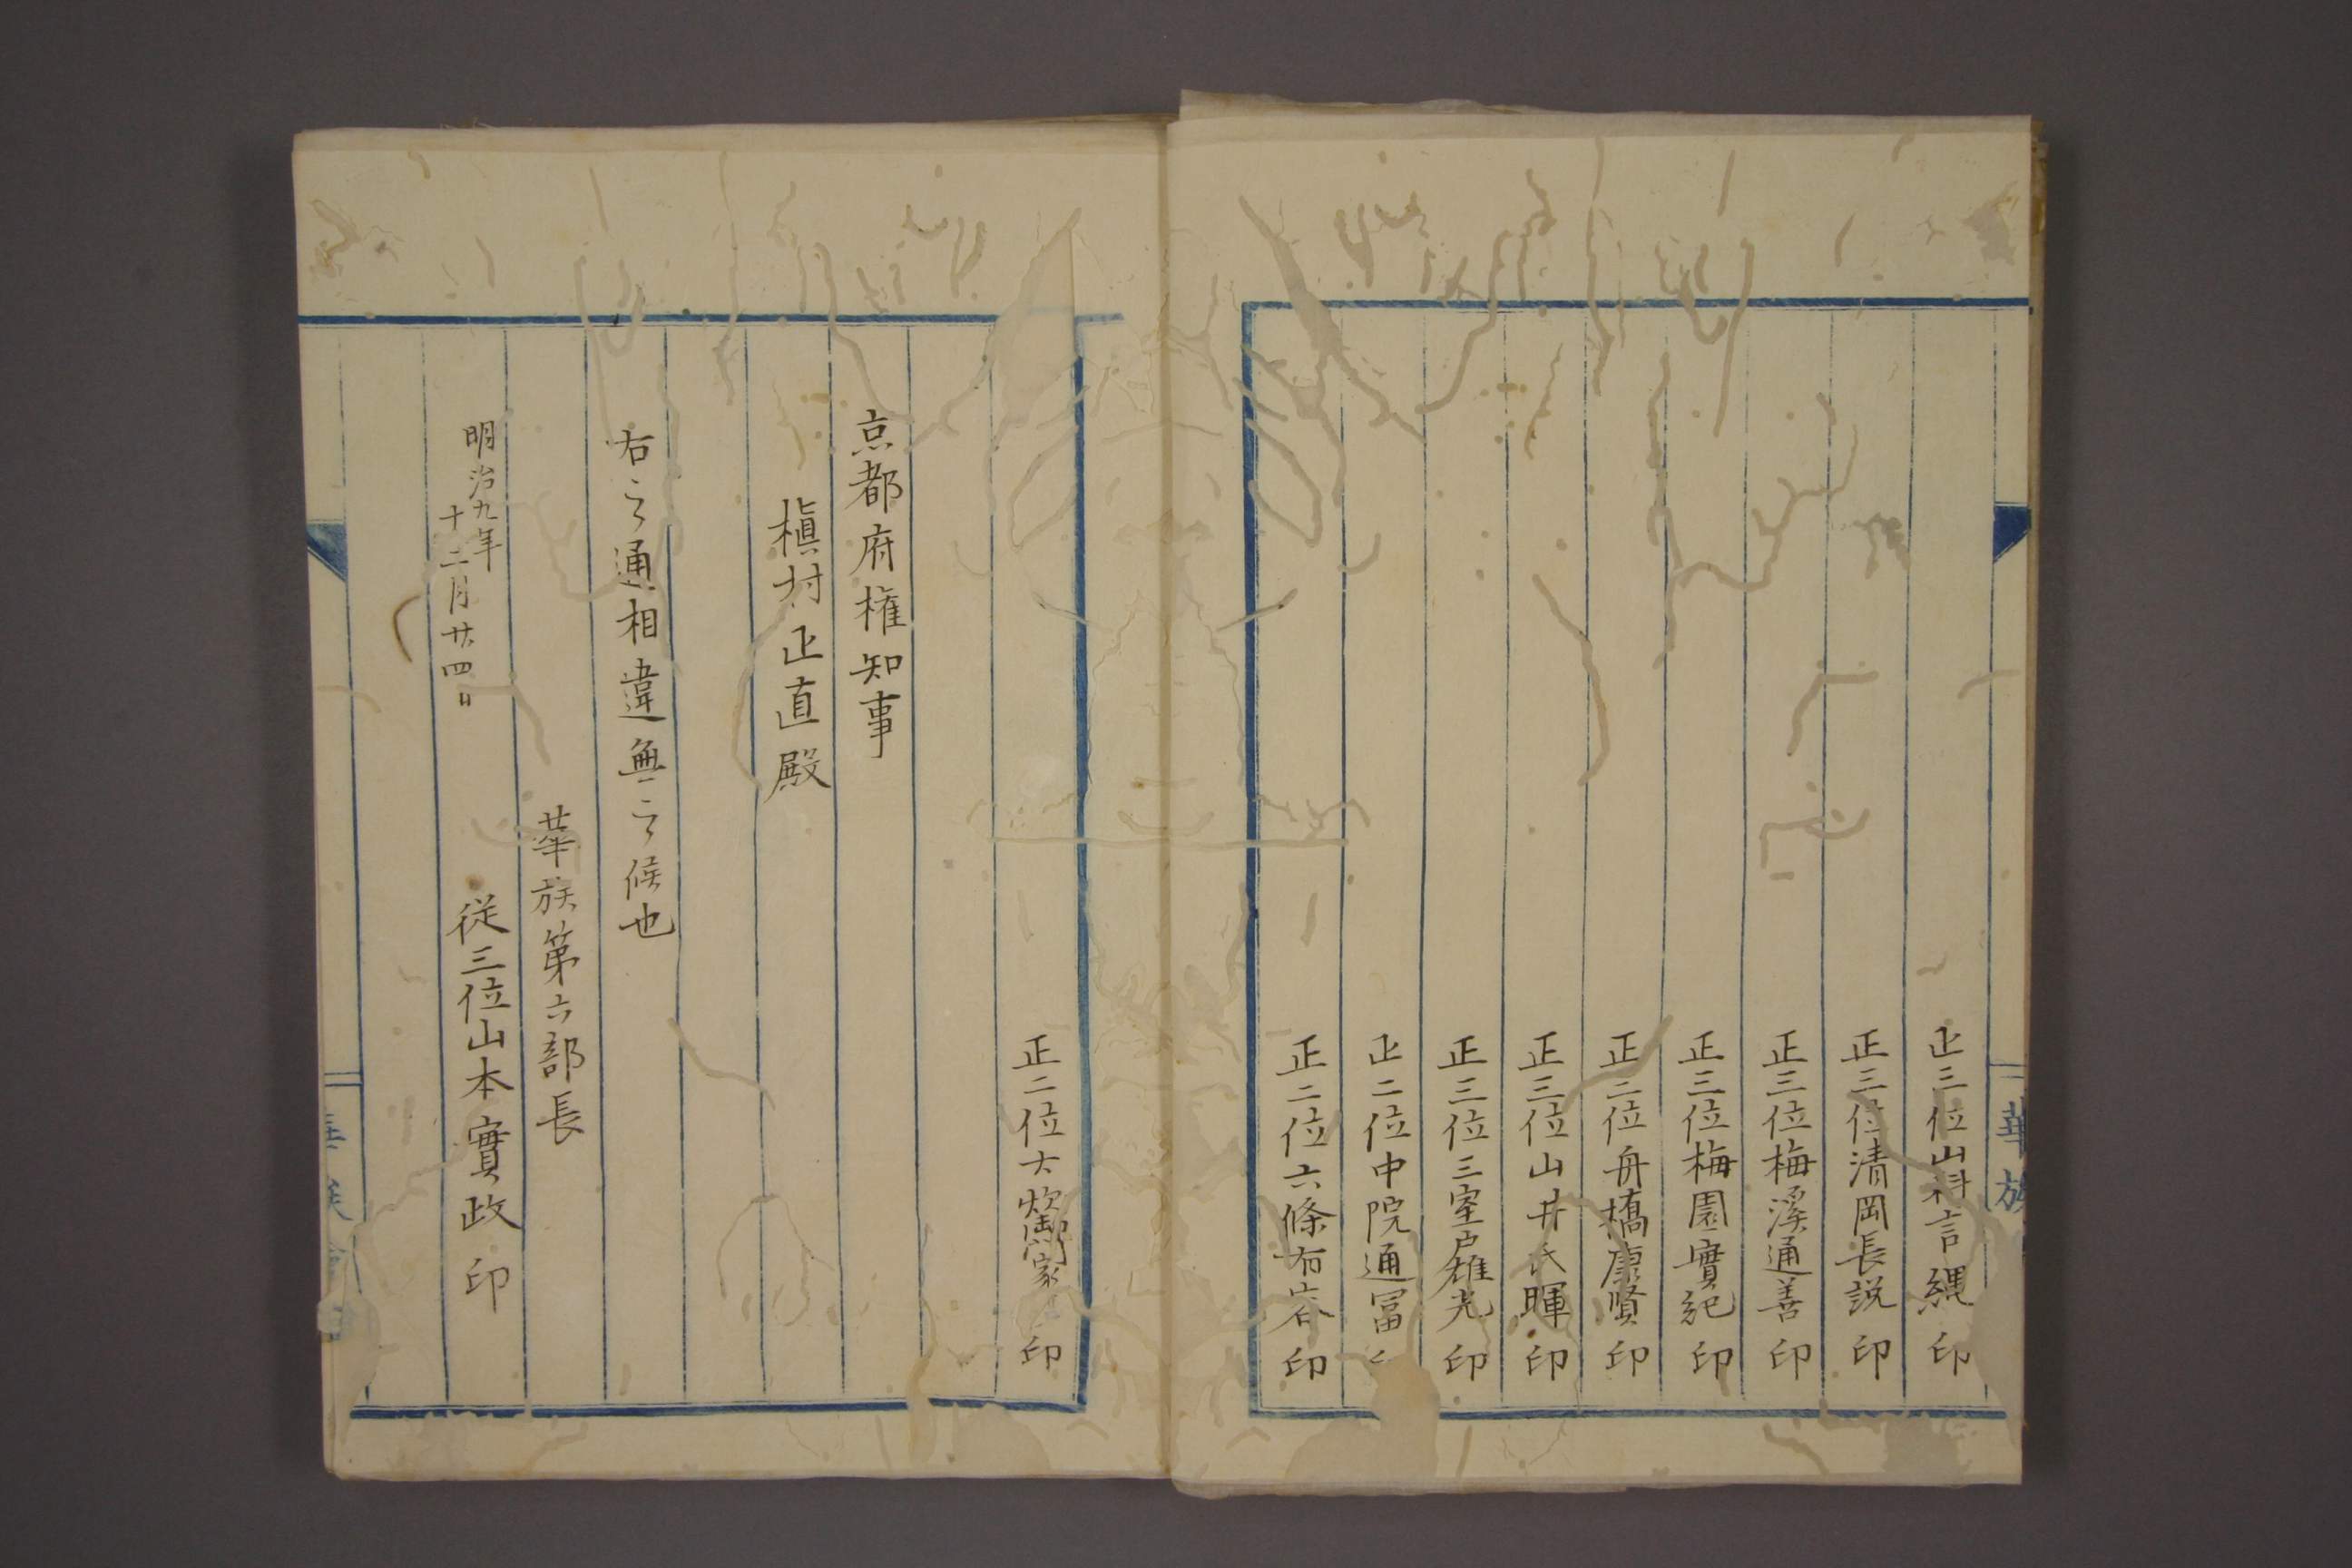 正三位山科言縄印
正三位清岡長説印
正三位梅溪通善印
正三位梅園實紀印
正二位舟橋康賢印
正三位山井氏暉印
正三位三室戸雄光印
正二位中院通冨
正二位六條有容印
正二位大炊御門家 印
京都府権知事
槇村正直殿
右之通相違無之候也
華族第六部長
明治九年
十二月廿四日
従三位山本實政印
華族